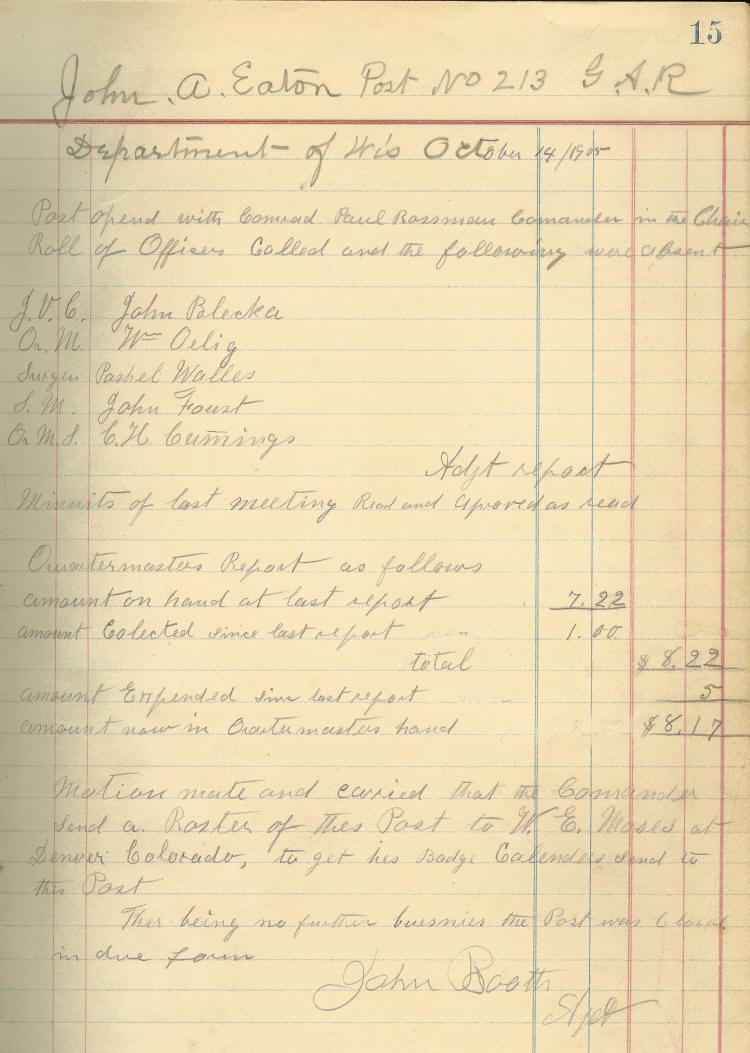 15
John. A. Eaton Post No 213 G.A.R
Department of Wis October 14/1905
Post opend with Comrad Paul Rossman Comander in the Chair
Roll of Officers Called and the following were absent
J.V.C. John Blecka
Qr. M. Wm Oelig
Surgen Pashel Walles
S. M. John Foust
Qr M. S. C. H. Cumings
Adjt report
Minuits of last meeting Read and Aproved as read
Quartermasters Report as follows
amount on hand at last report 7.22
amount Colected since last report 1.00
total $ 8.22
amount Exspended sinc last report 5
amount now in Quartermasters hand $8.17
Motion mate and carried that the Comander
send a Roster of thes Post to W. E. Moses at
Denver Colorado, to get hes Badge Calenders send to
this Post
Ther being no further buesnies the Post was Closed
in due form
John Booth
Ajet